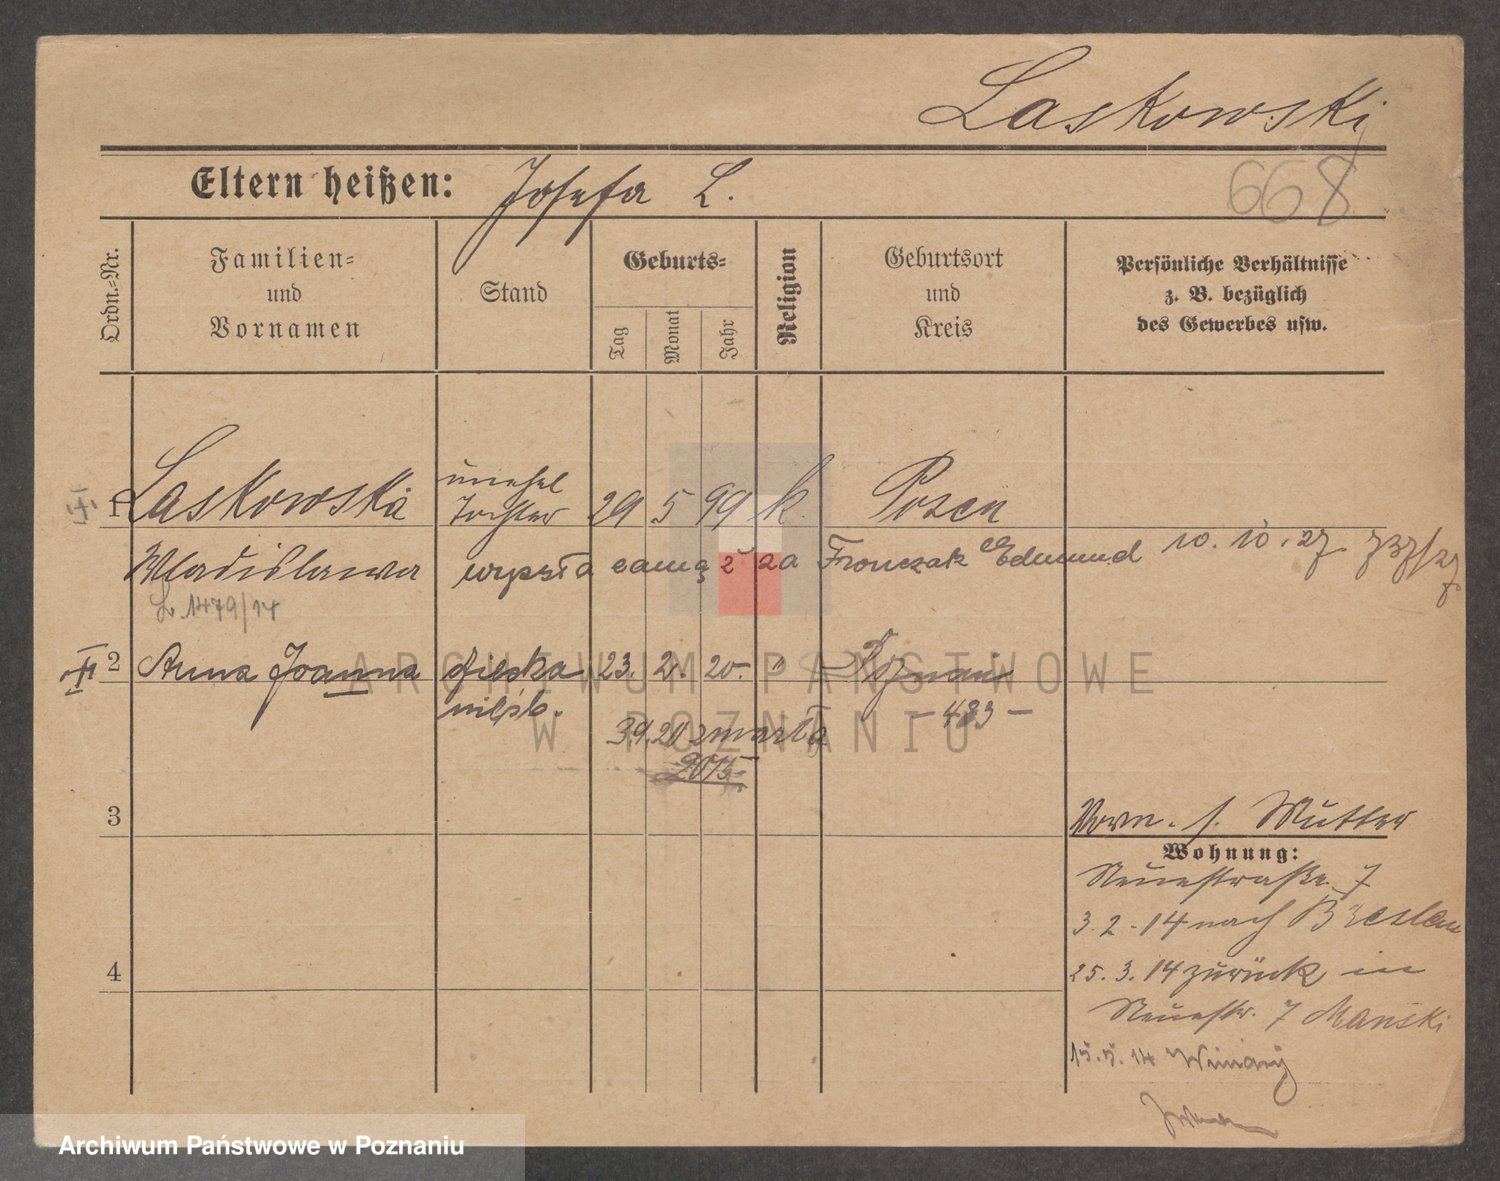 Laskowski
Eltern heißen: Josefa L.
668
Ordn.-Nr.
Familien-
und
Vornamen
Stand
Geburts-
Tag
Monat
Jahr
Religion
Geburtsort
und
Kreis
Persönliche Verhältnisse
z. B. bezüglich
des Gewerbes usw.
1 Laskowska unehel Tochter 29 5 99 k. Posen
Wladislawa wyszła zamąż za Fronczak Edmund 10. 10. 27 737/27
L. 1479/14
2 Anna Joanna 23. 2. 20. "
nieślb. - 483 -
20 zmarła
3
Vorm. s. Mutter
Wohnung:
Neuestraße 7
3. 2. 14 nach Breslau
4
25. 3. 14 zurück in
Neuestr. 7 Manski
15. 5. 14 Winiary
ARCHIWUM PAŃSTWOWE
W POZNANIU
Archiwum Państwowe w Poznaniu